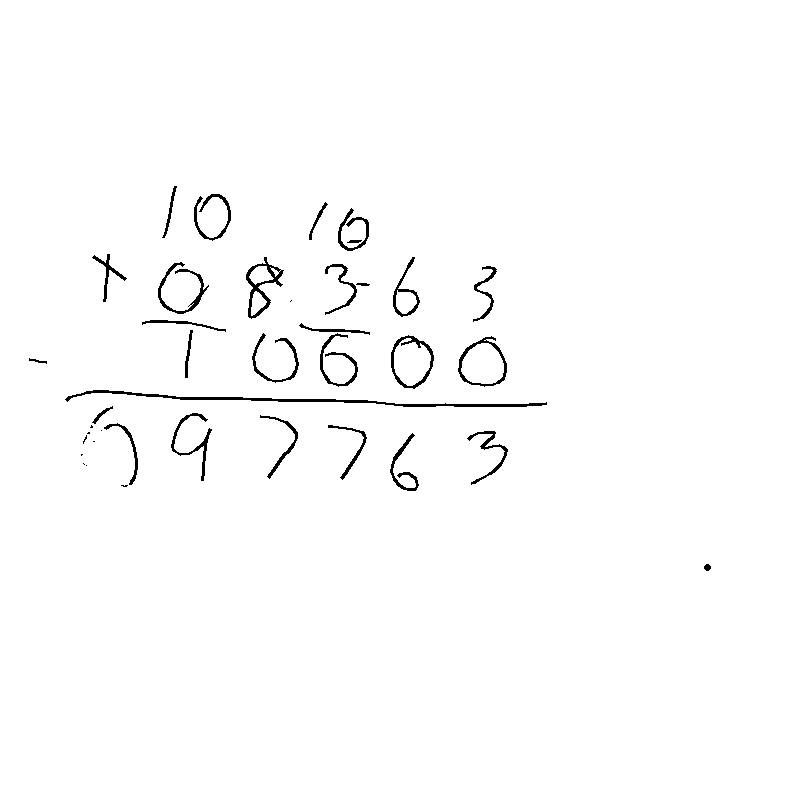 10 10
+ 0 8 3 6 3
- 1 0 6 0 0
0 9 7 7 6 3